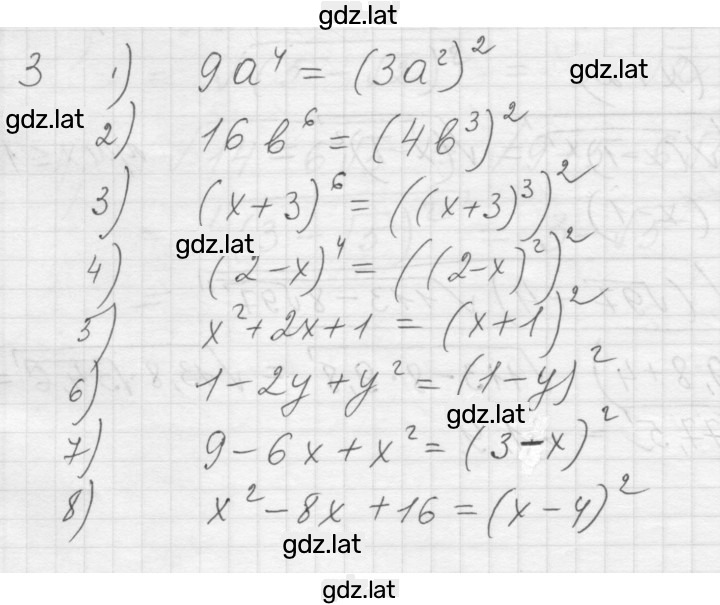 gdz.lat
3 1) 9a⁴ = (3a²)²
gdz.lat
gdz.lat
2) 16 b⁶ = (4b³)²
3) (x+3)⁶ = ((x+3)³)²
gdz.lat
4) (2-x)⁴ = ((2-x)²)²
5) x²+2x+1 = (x+1)²
6) 1-2y+y² = (1-y)²
gdz.lat
7) 9-6x+x² = (3-x)²
8) x²-8x+16 = (x-4)²
gdz.lat
gdz.lat